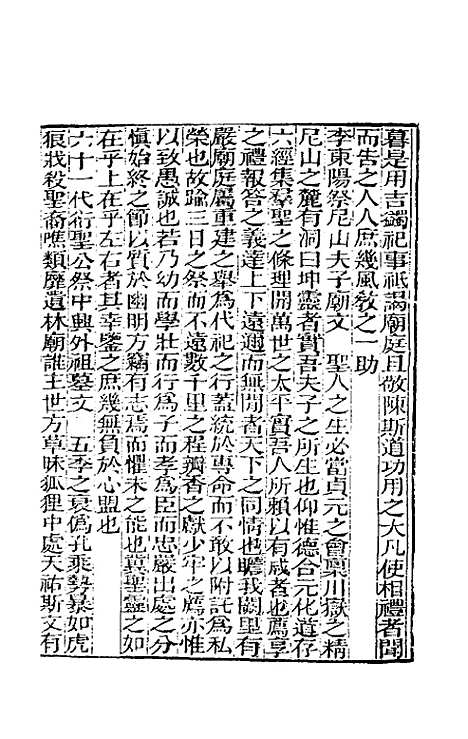 暮是用吉蠲祀事祗謁廟庭且敬陳斯道功用之大凡使相禮者聞
而告之人人庶幾風敎之一助
李東陽祭尼山夫子廟文　聖人之生必當貞元之會稟川嶽之精
尼山之麓有洞曰坤靈者實吾夫子之所生也仰惟德合元化道存
六經集羣聖之條理開萬世之太平實吾人所賴以有成者也薦享
之禮報答之義達上下遠邇而無間者天下之同情也瞻我闕里有
嚴廟庭屬重建之舉爲代祀之行蓋統於專命而不敢以附託爲私
榮也故踰三日之祭而不遠數千里之程瓣香之獻少牢之薦亦惟
以致愚誠也若乃幼而學壯而行爲子而孝爲臣而忠嚴出處之分
愼始終之節以質於幽明方竊有志焉而懼未之能也冀聖靈之如
在乎上在乎左右者其幸鑒之庶幾無負於心盟也
六十一代衍聖公祭中興外祖墓文　五季之衰僞孔乘勢暴如虎
狼戕殺聖裔噍類靡遺林廟誰主世方草昧狐狸中處天祐斯文有